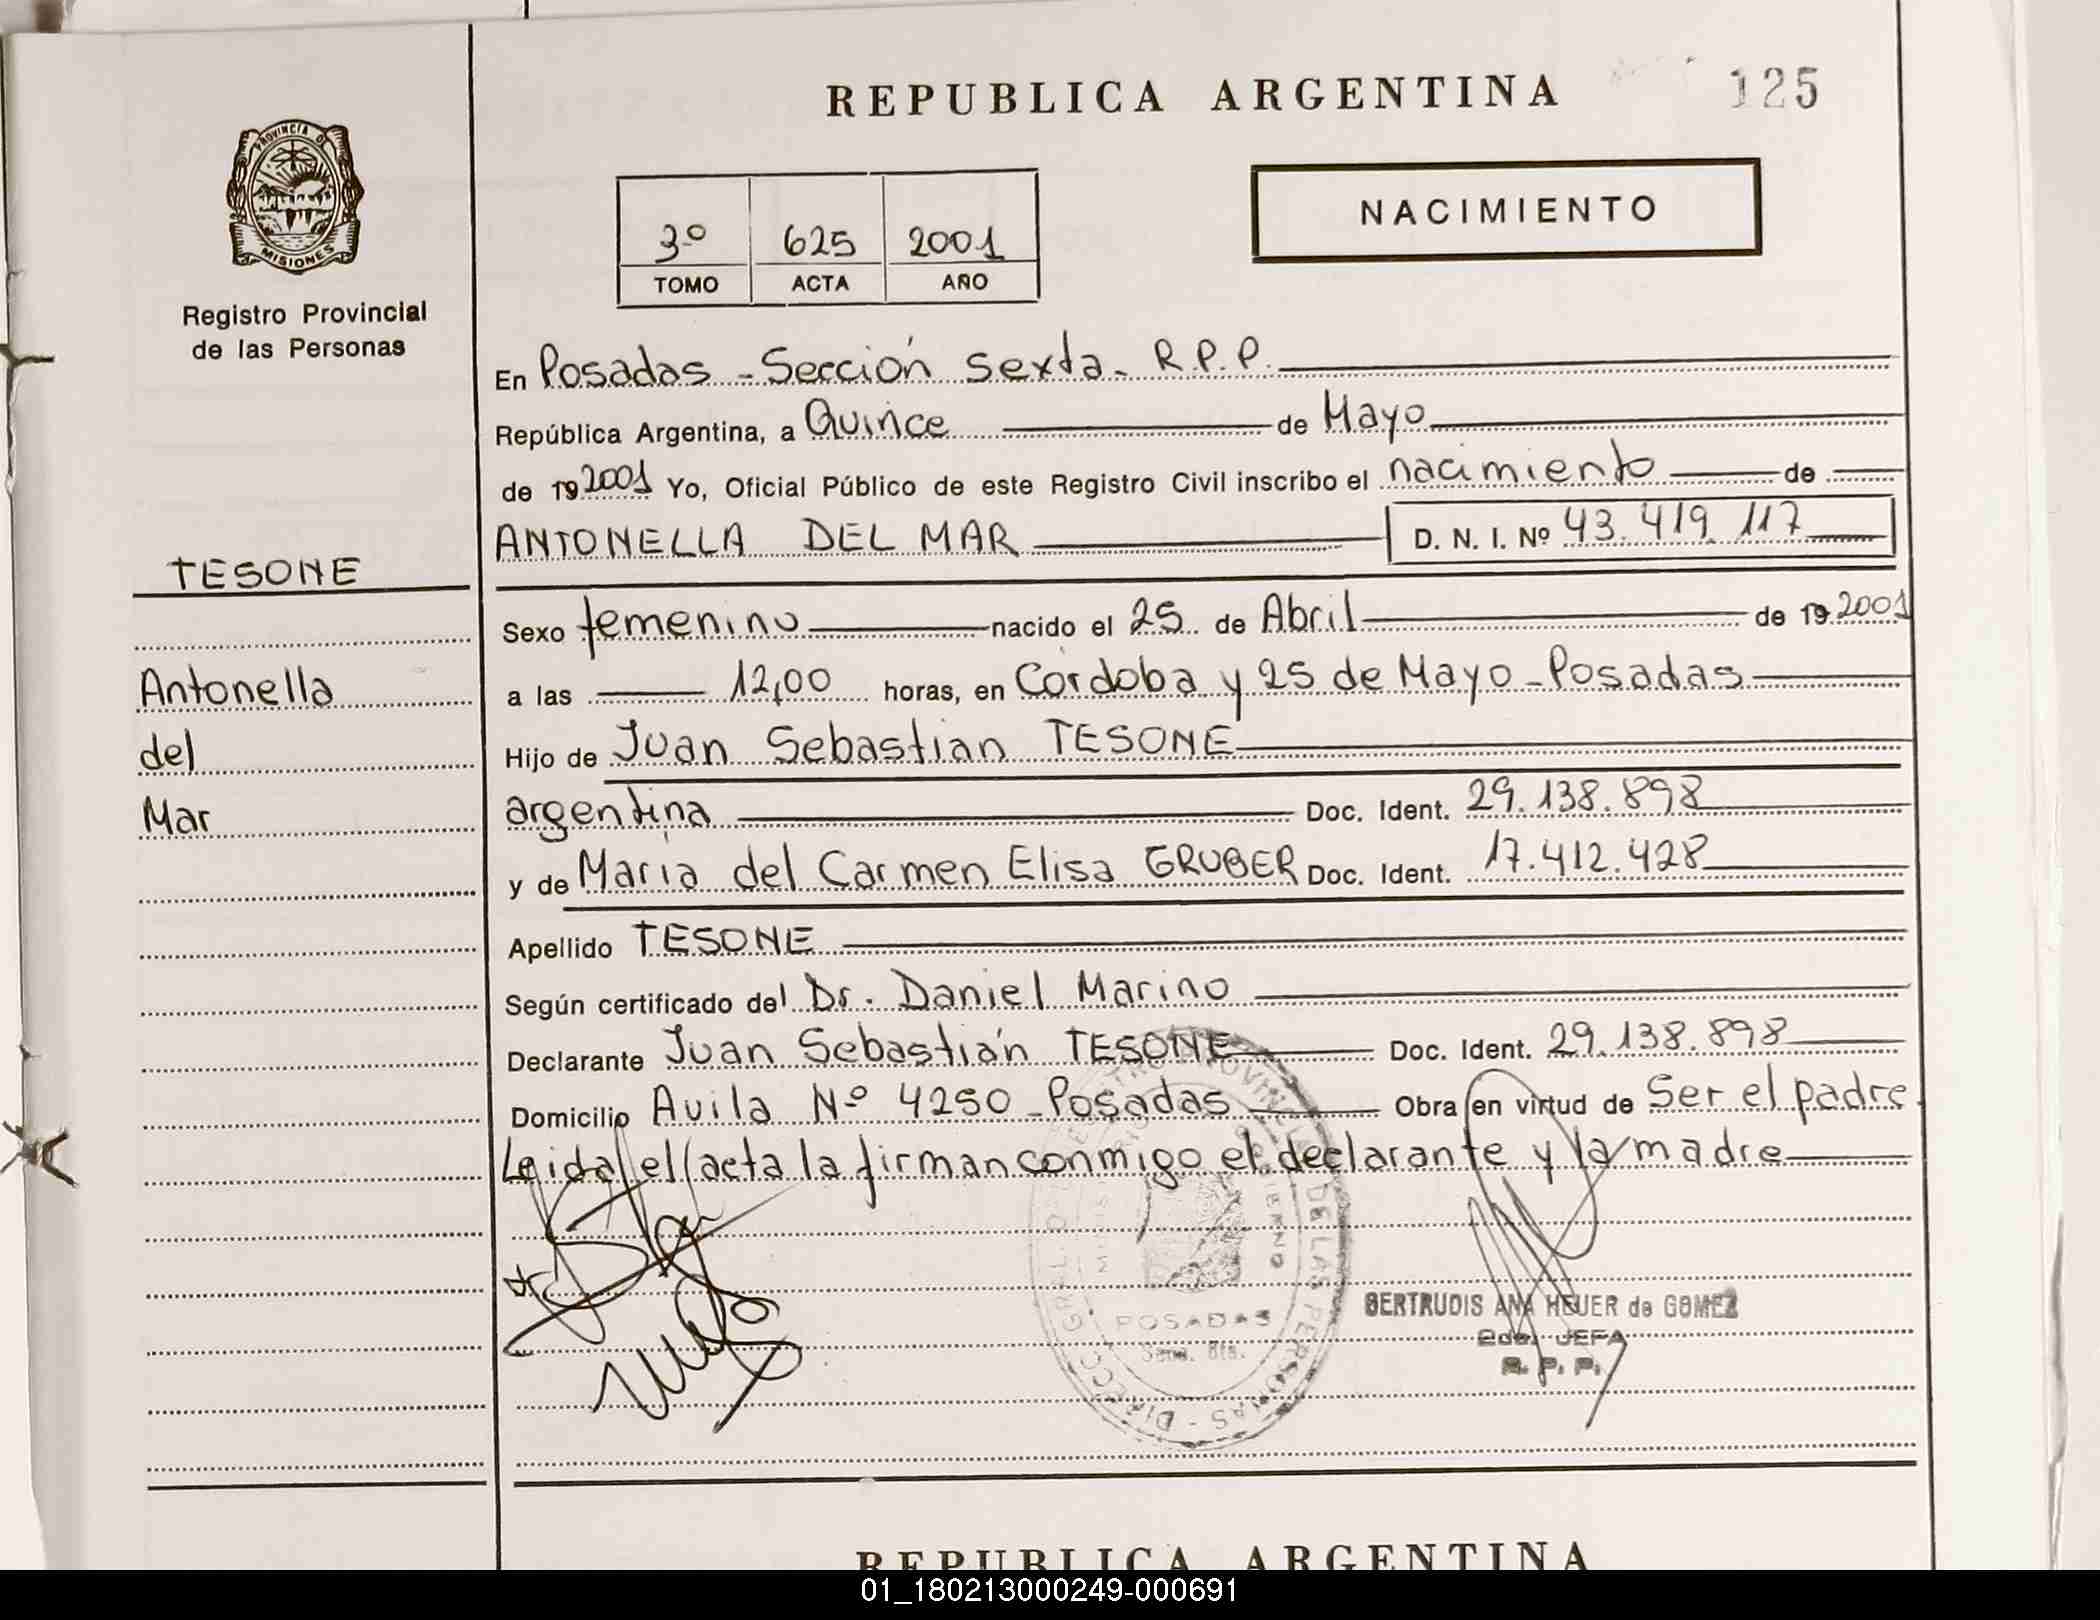 REPUBLICA ARGENTINA
125
PROVINCIA DE
MISIONES
Registro Provincial
de las Personas
3º 625 2001
TOMO ACTA AÑO
NACIMIENTO
En Posadas - Sección Sexta - R.P.P.
República Argentina, a Quince de Mayo
de 19 2001 Yo, Oficial Público de este Registro Civil inscribo el nacimiento de
ANTONELLA DEL MAR D. N. I. Nº 43.419.117
TESONE
Antonella
del
Mar
Sexo femenino nacido el 25 de Abril de 19 2001
a las 12,00 horas, en Córdoba y 25 de Mayo - Posadas
Hijo de Juan Sebastian TESONE
argentina Doc. Ident. 29.138.898
y de María del Carmen Elisa GRUBER Doc. Ident. 17.412.428
Apellido TESONE
Según certificado del Dr. Daniel Marino
Declarante Juan Sebastián TESONE Doc. Ident. 29.138.898
Domicilio Avila Nº 4250 - Posadas Obra en virtud de Ser el padre.
Leida el acta la firman conmigo el declarante y la madre
POSADAS
GERTRUDIS ANA HEUER de GOMEZ
2da. JEFA
R. P. P.
REPUBLICA ARGENTINA
01_180213000249-000691